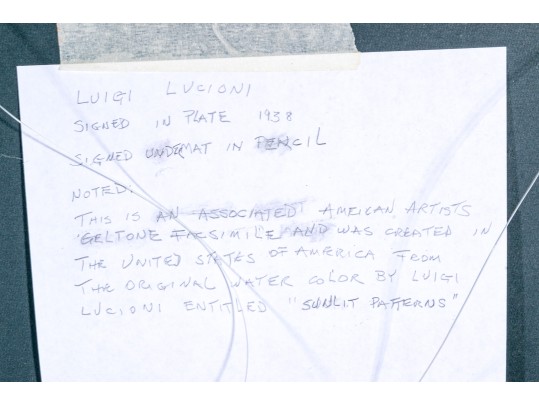 LUIGI LUCIONI
SIGNED IN PLATE 1938
SIGNED UNDERMAT IN PENCIL
NOTED:
THIS IS AN ASSOCIATED AMEICAN ARTISTS
"GELTONE FACSIMILE" AND WAS CREATED IN
THE UNITED STATES OF AMERICA FROM
THE ORIGINAL WATER COLOR BY LUIGI
LUCIONI ENTITLED "SUNLIT PATTERNS"